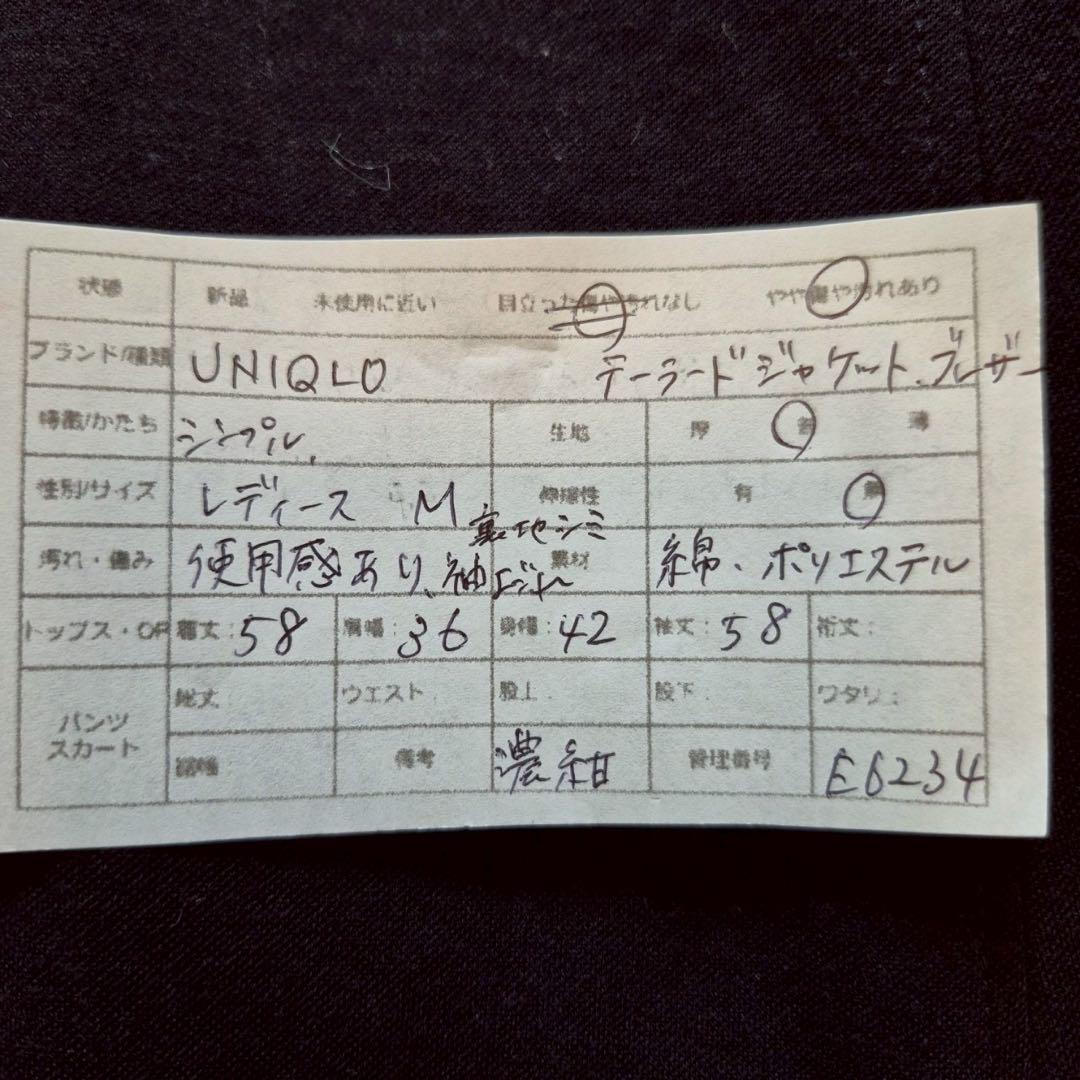 状態 新品 未使用に近い 目立った傷や汚れなし やや傷や汚れあり
ブランド/種類 UNIQLO テーラードジャケット、ブレザー
特徴/かたち シンプル、 生地 厚 普 薄
性別/サイズ レディース M 伸縮性 有 無
裏地シミ
汚れ・傷み 使用感あり、袖 素材 綿、ポリエステル
トップス・OP 着丈:58 肩幅:36 身幅:42 袖丈:58 裄丈:
パンツ スカート 総丈 ウエスト 股上 股下 ワタリ:
裾幅 備考 濃紺 管理番号 E6234